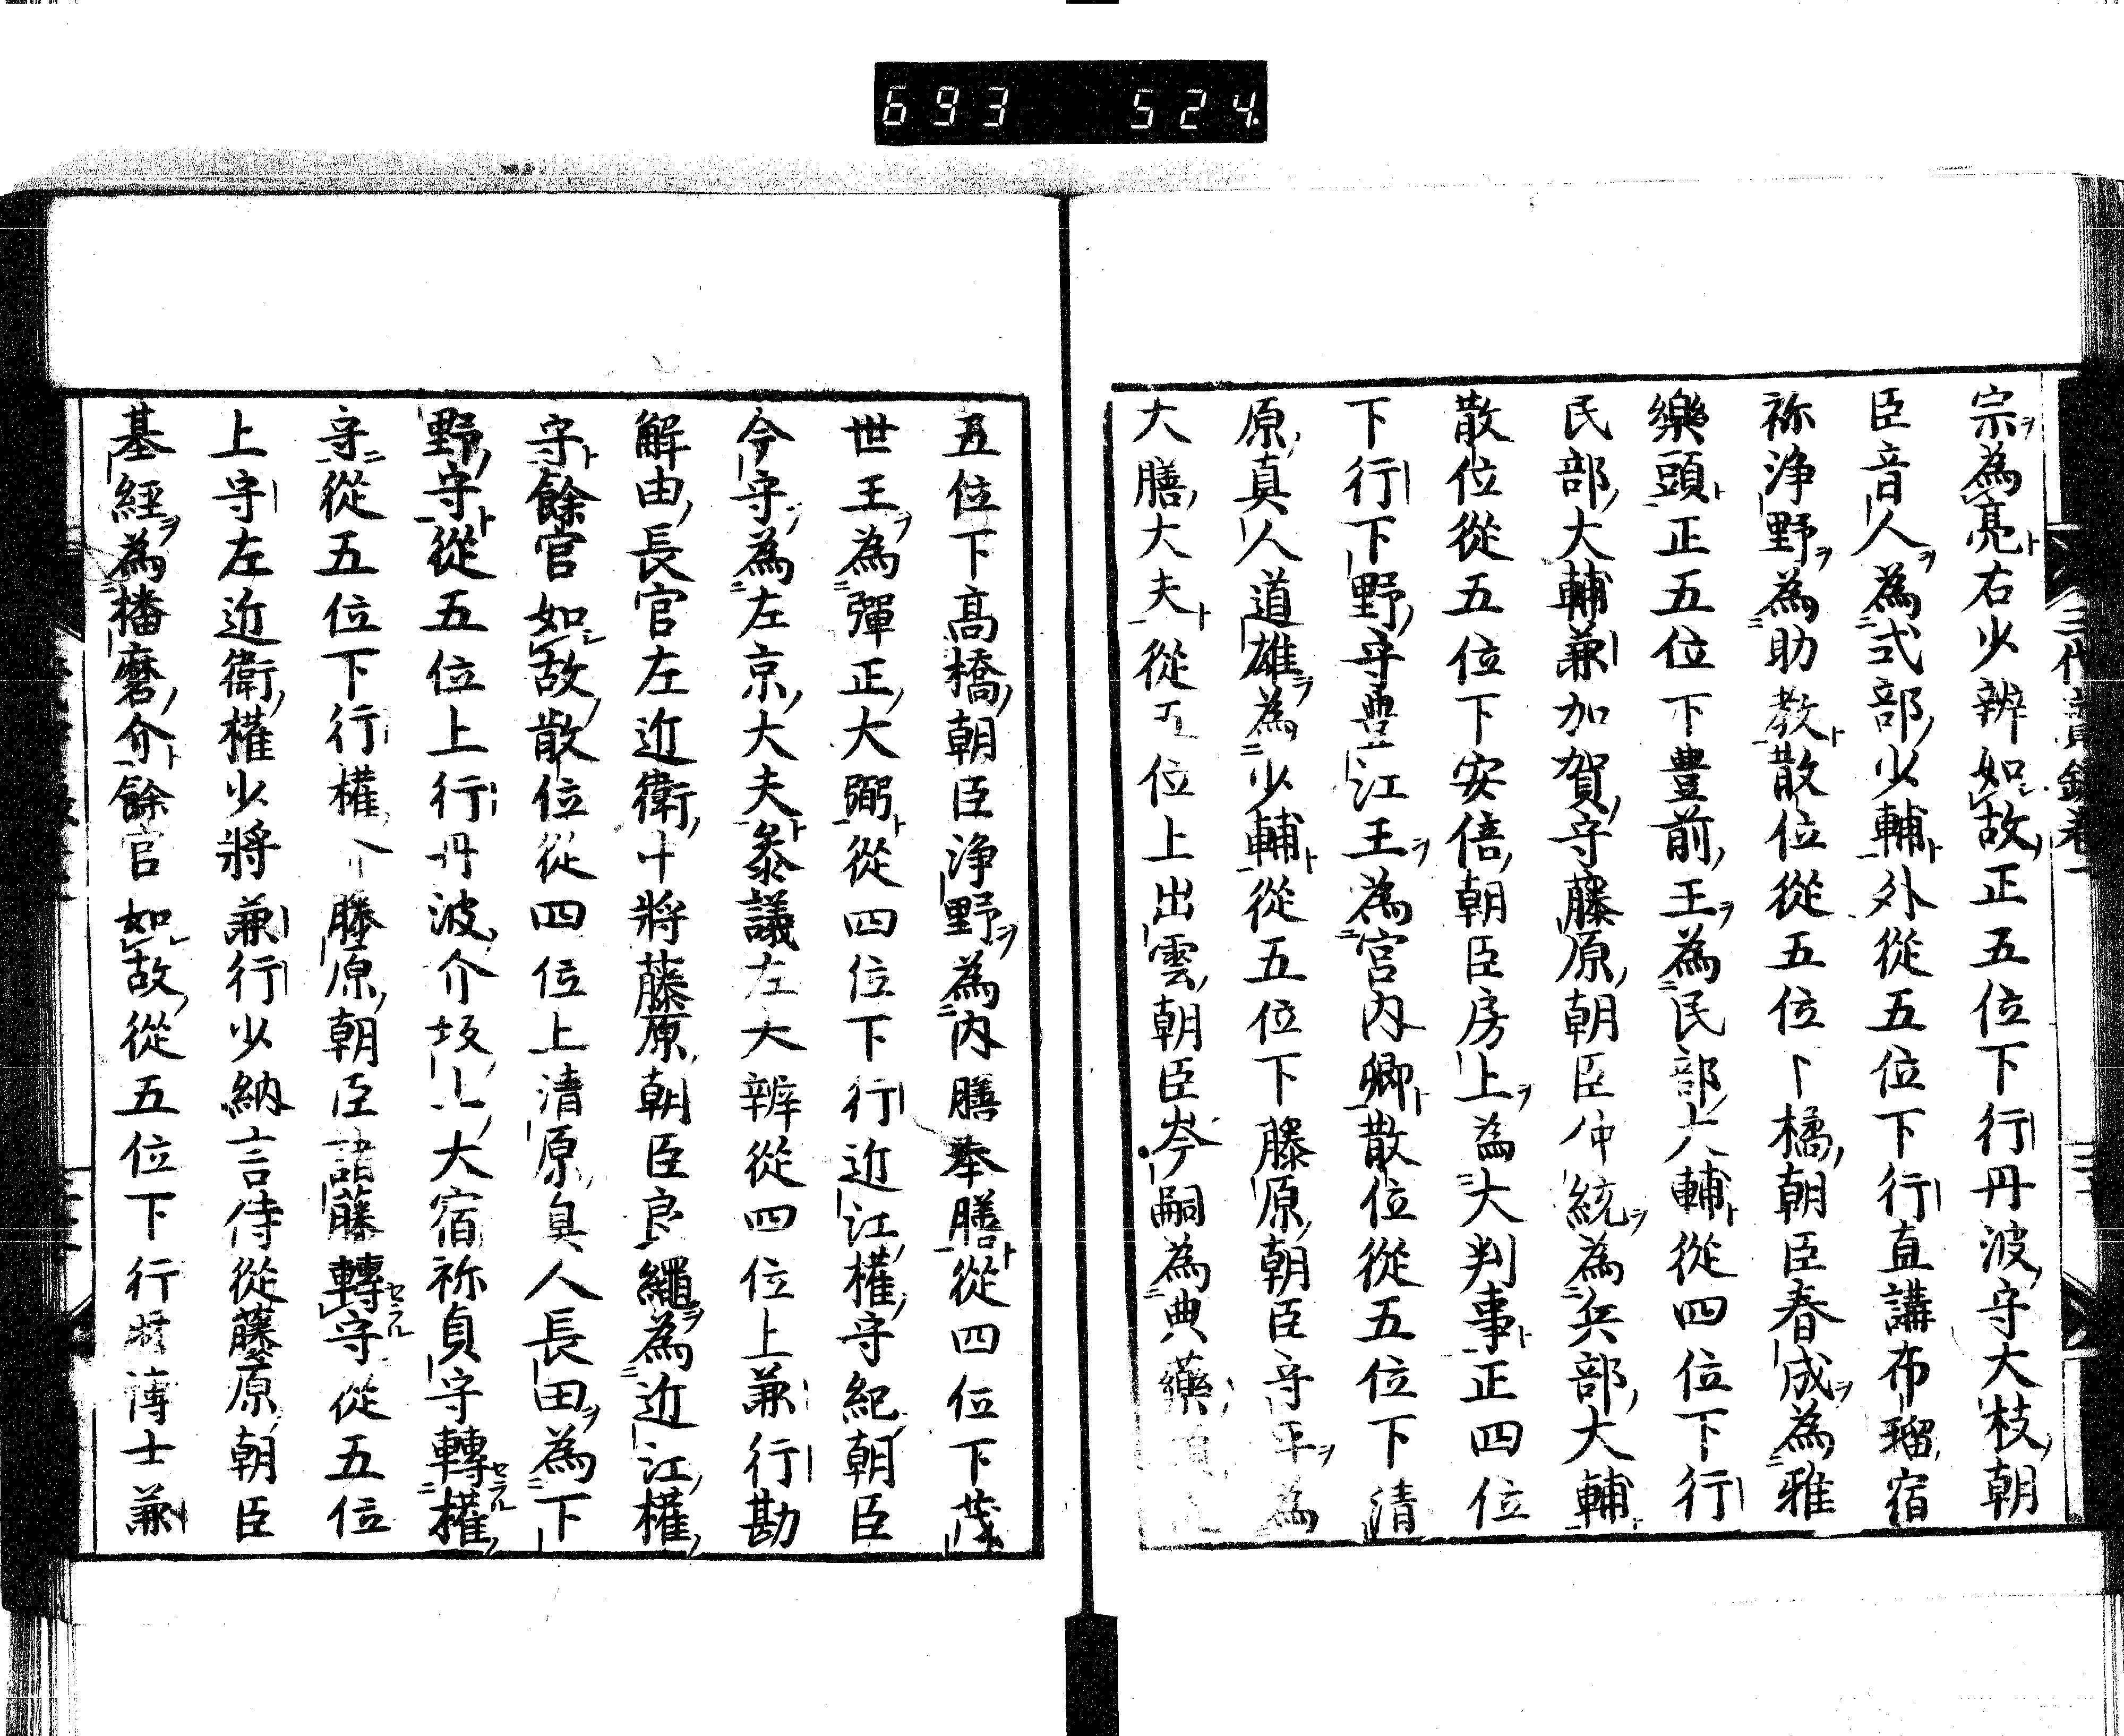 693 524
宗為亮右少辨如故正五位下行丹波守大枝朝
臣音人為式部少輔外從五位下行直講布瑠宿
祢浄野為助教散位從五位下橘朝臣春成為雅
樂頭正五位下豊前王為民部大輔從四位下行
民部大輔兼加賀守藤原朝臣仲統為兵部大輔
散位從五位下安倍朝臣房上為大判事正四位
下行下野守豊江王為宮内卿散位從五位下清
原真人道雄為少輔從五位下藤原朝臣守平為
大膳大夫從五位上出雲朝臣岑嗣為典藥
五位下髙橋朝臣浄野為内膳奉膳從四位下茂
世王為彈正大弼從四位下行近江權守紀朝臣
今守為左京大夫参議左大辨從四位上兼行勘
解由長官左近衛中將藤原朝臣良繩為近江權
守餘官如故散位從四位上清原真人長田為下
野守從五位上行丹波介坂上大宿祢貞守轉權
守從五位下行權介藤原朝臣諸藤轉守從五位
上守左近衛權少將兼行少納言侍從藤原朝臣
基經為播磨介餘官如故從五位下行博士兼